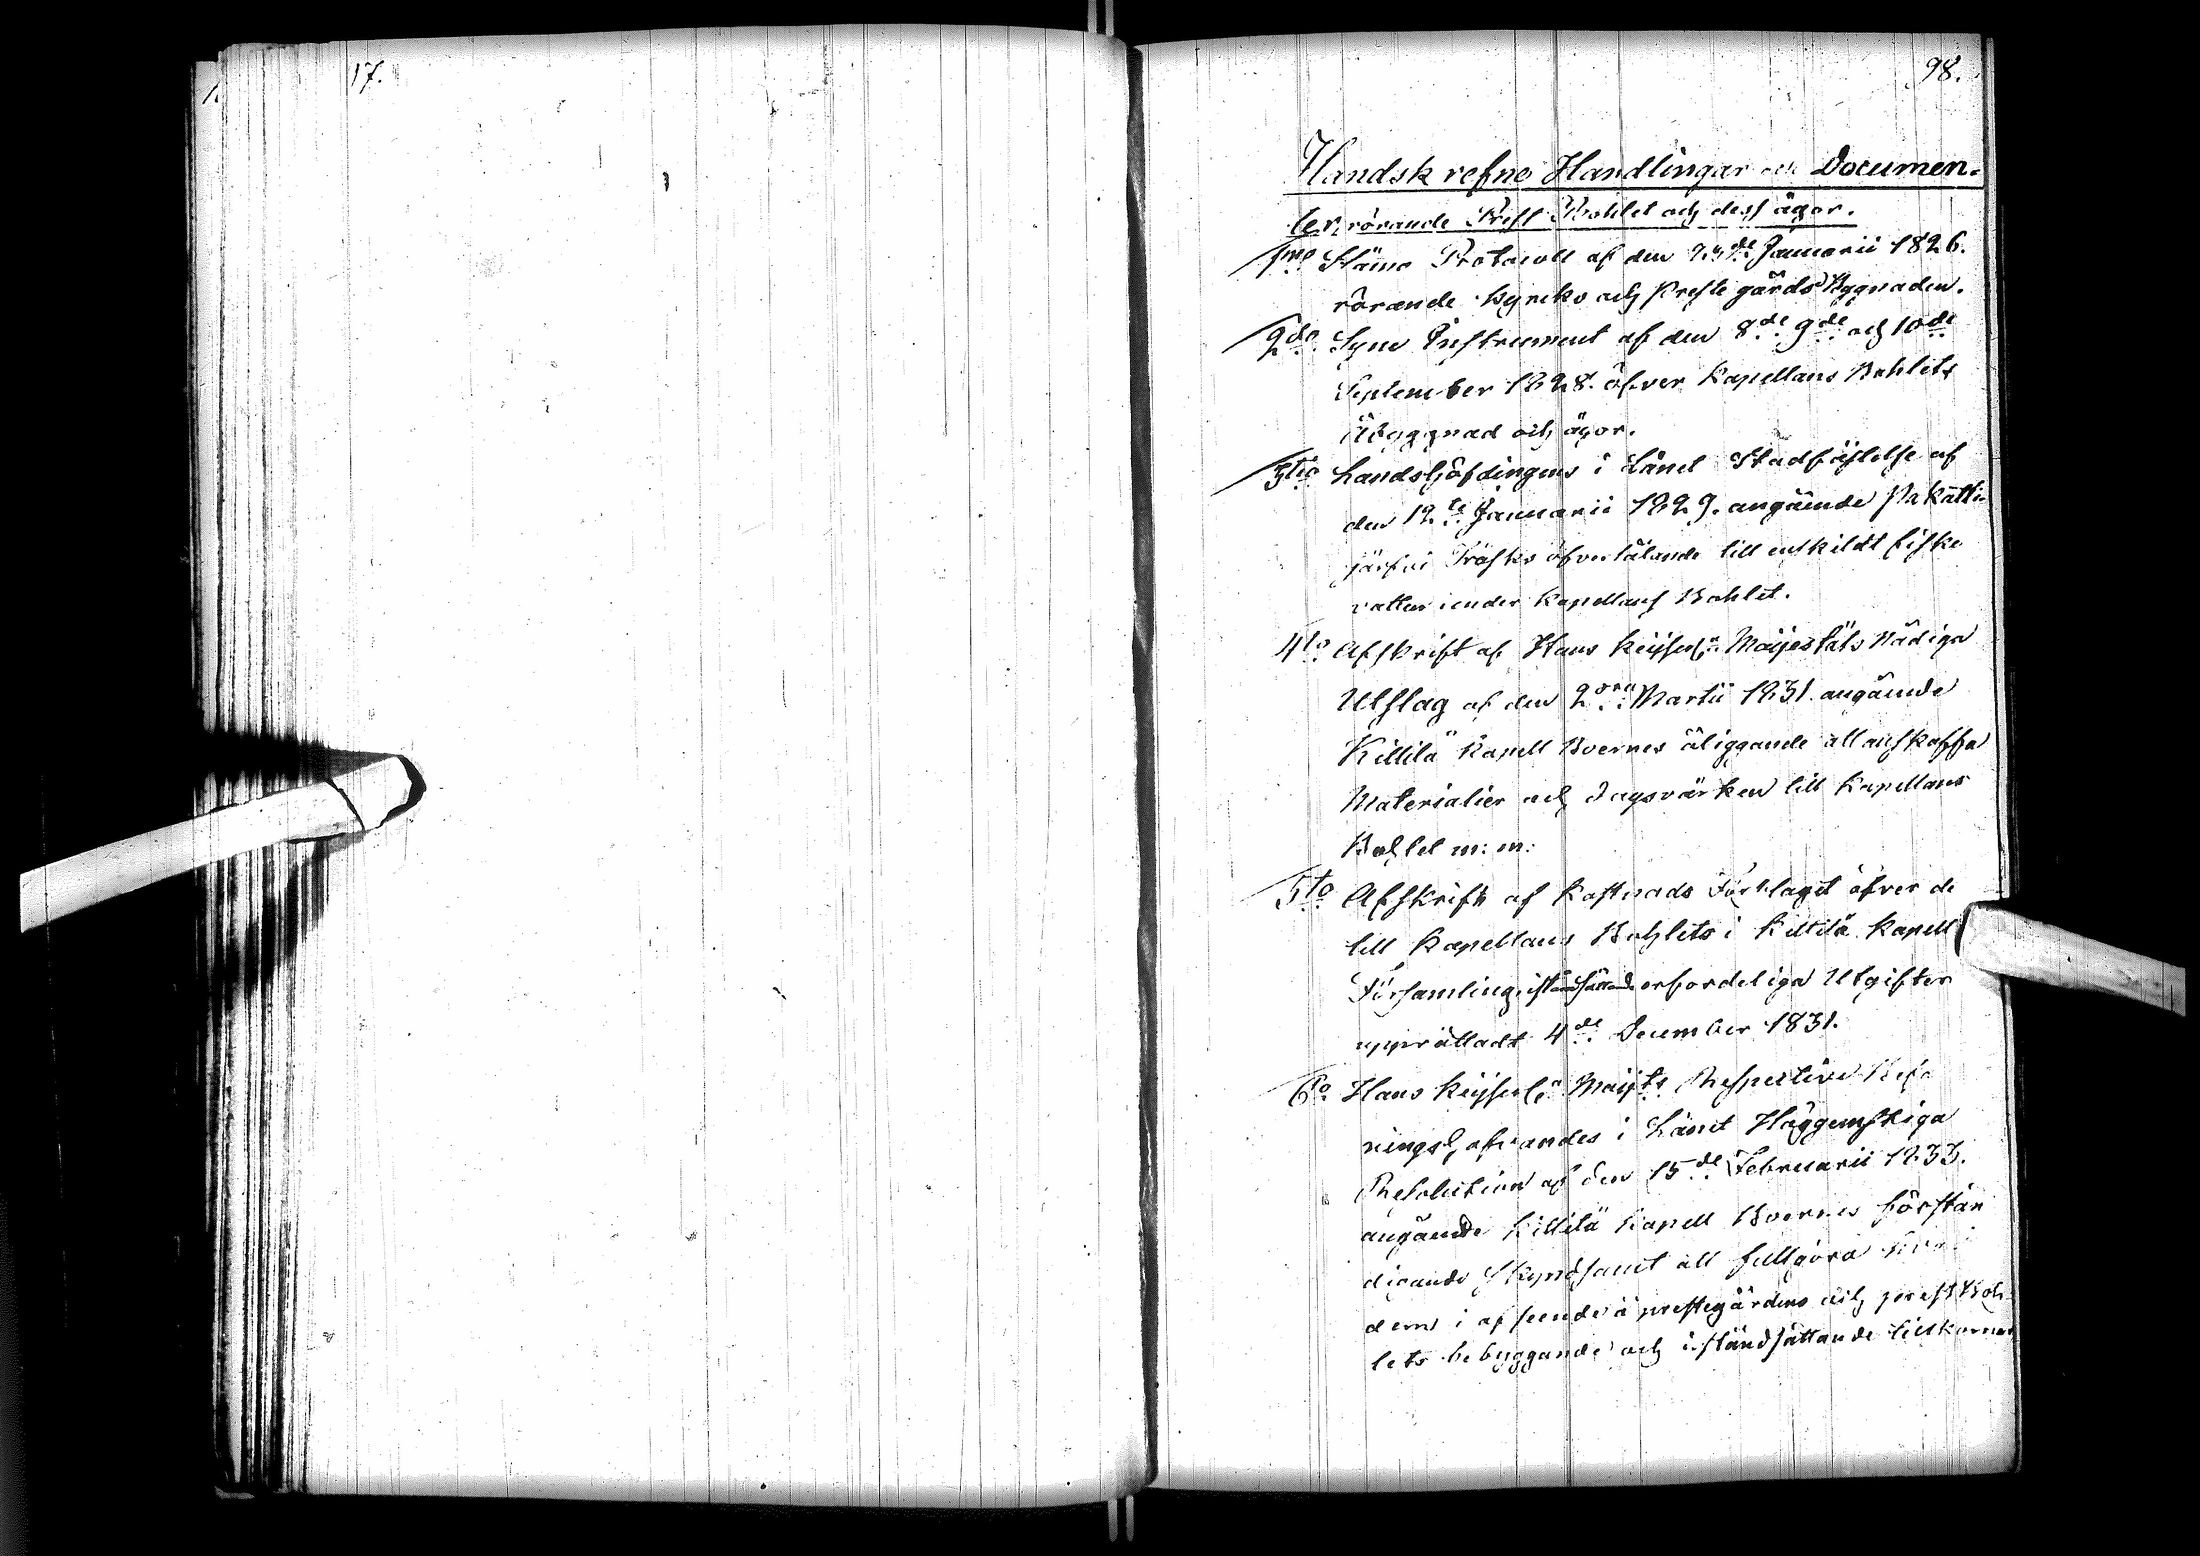 17.
98.
Handskrefne Handlingar och Documen-
ter, rörande Prest Bohlet och dess ägor.
1mo Stäma Protocoll af den Januarii 1826.
rörande Kyrko och Prestegårds Byggnaden.
2do Syne Instrument af den 8de 9de och 10de
September 1828. öfver Kapellans Bohlets
Åbyggnad och ägor.
3tio Landshöfdingens i Länet Stadfästelse af
den 12te Januarii 1829. angående Pakatti-
järfvi Träsks öfverlåtande till enskildt fiske
vatten under Kapellans Bohlet.
4to Afskrift af Hans Keijserl:a Maijestäts Nådiga
Utslag af den 2dra Martii 1831. angående
Kittilä Kapell Boernes åliggande att anskaffa
Materialier och dagsvärken till Kapellans
Bohlet m: m:
5to Afskrift af Kostnads Förslaget öfver de
till Kapellans Bohlets i Kittilä Kapell
Församling iståndsättande erforderliga Utgifter
upprättadt 4de December 1831.
6to Hans Keijserl:a Maij:ts Respective Befa
ningshafvandes i Länet Höggunstiga
Resolution af den 15de Februarii 1833.
angående Kittilä Kapell Boernes förstän
digande skyndsamt att fullgöra
dem i afseende å prestegårdens och prest Boh-
lets bebyggande och iståndsättande tillkommer